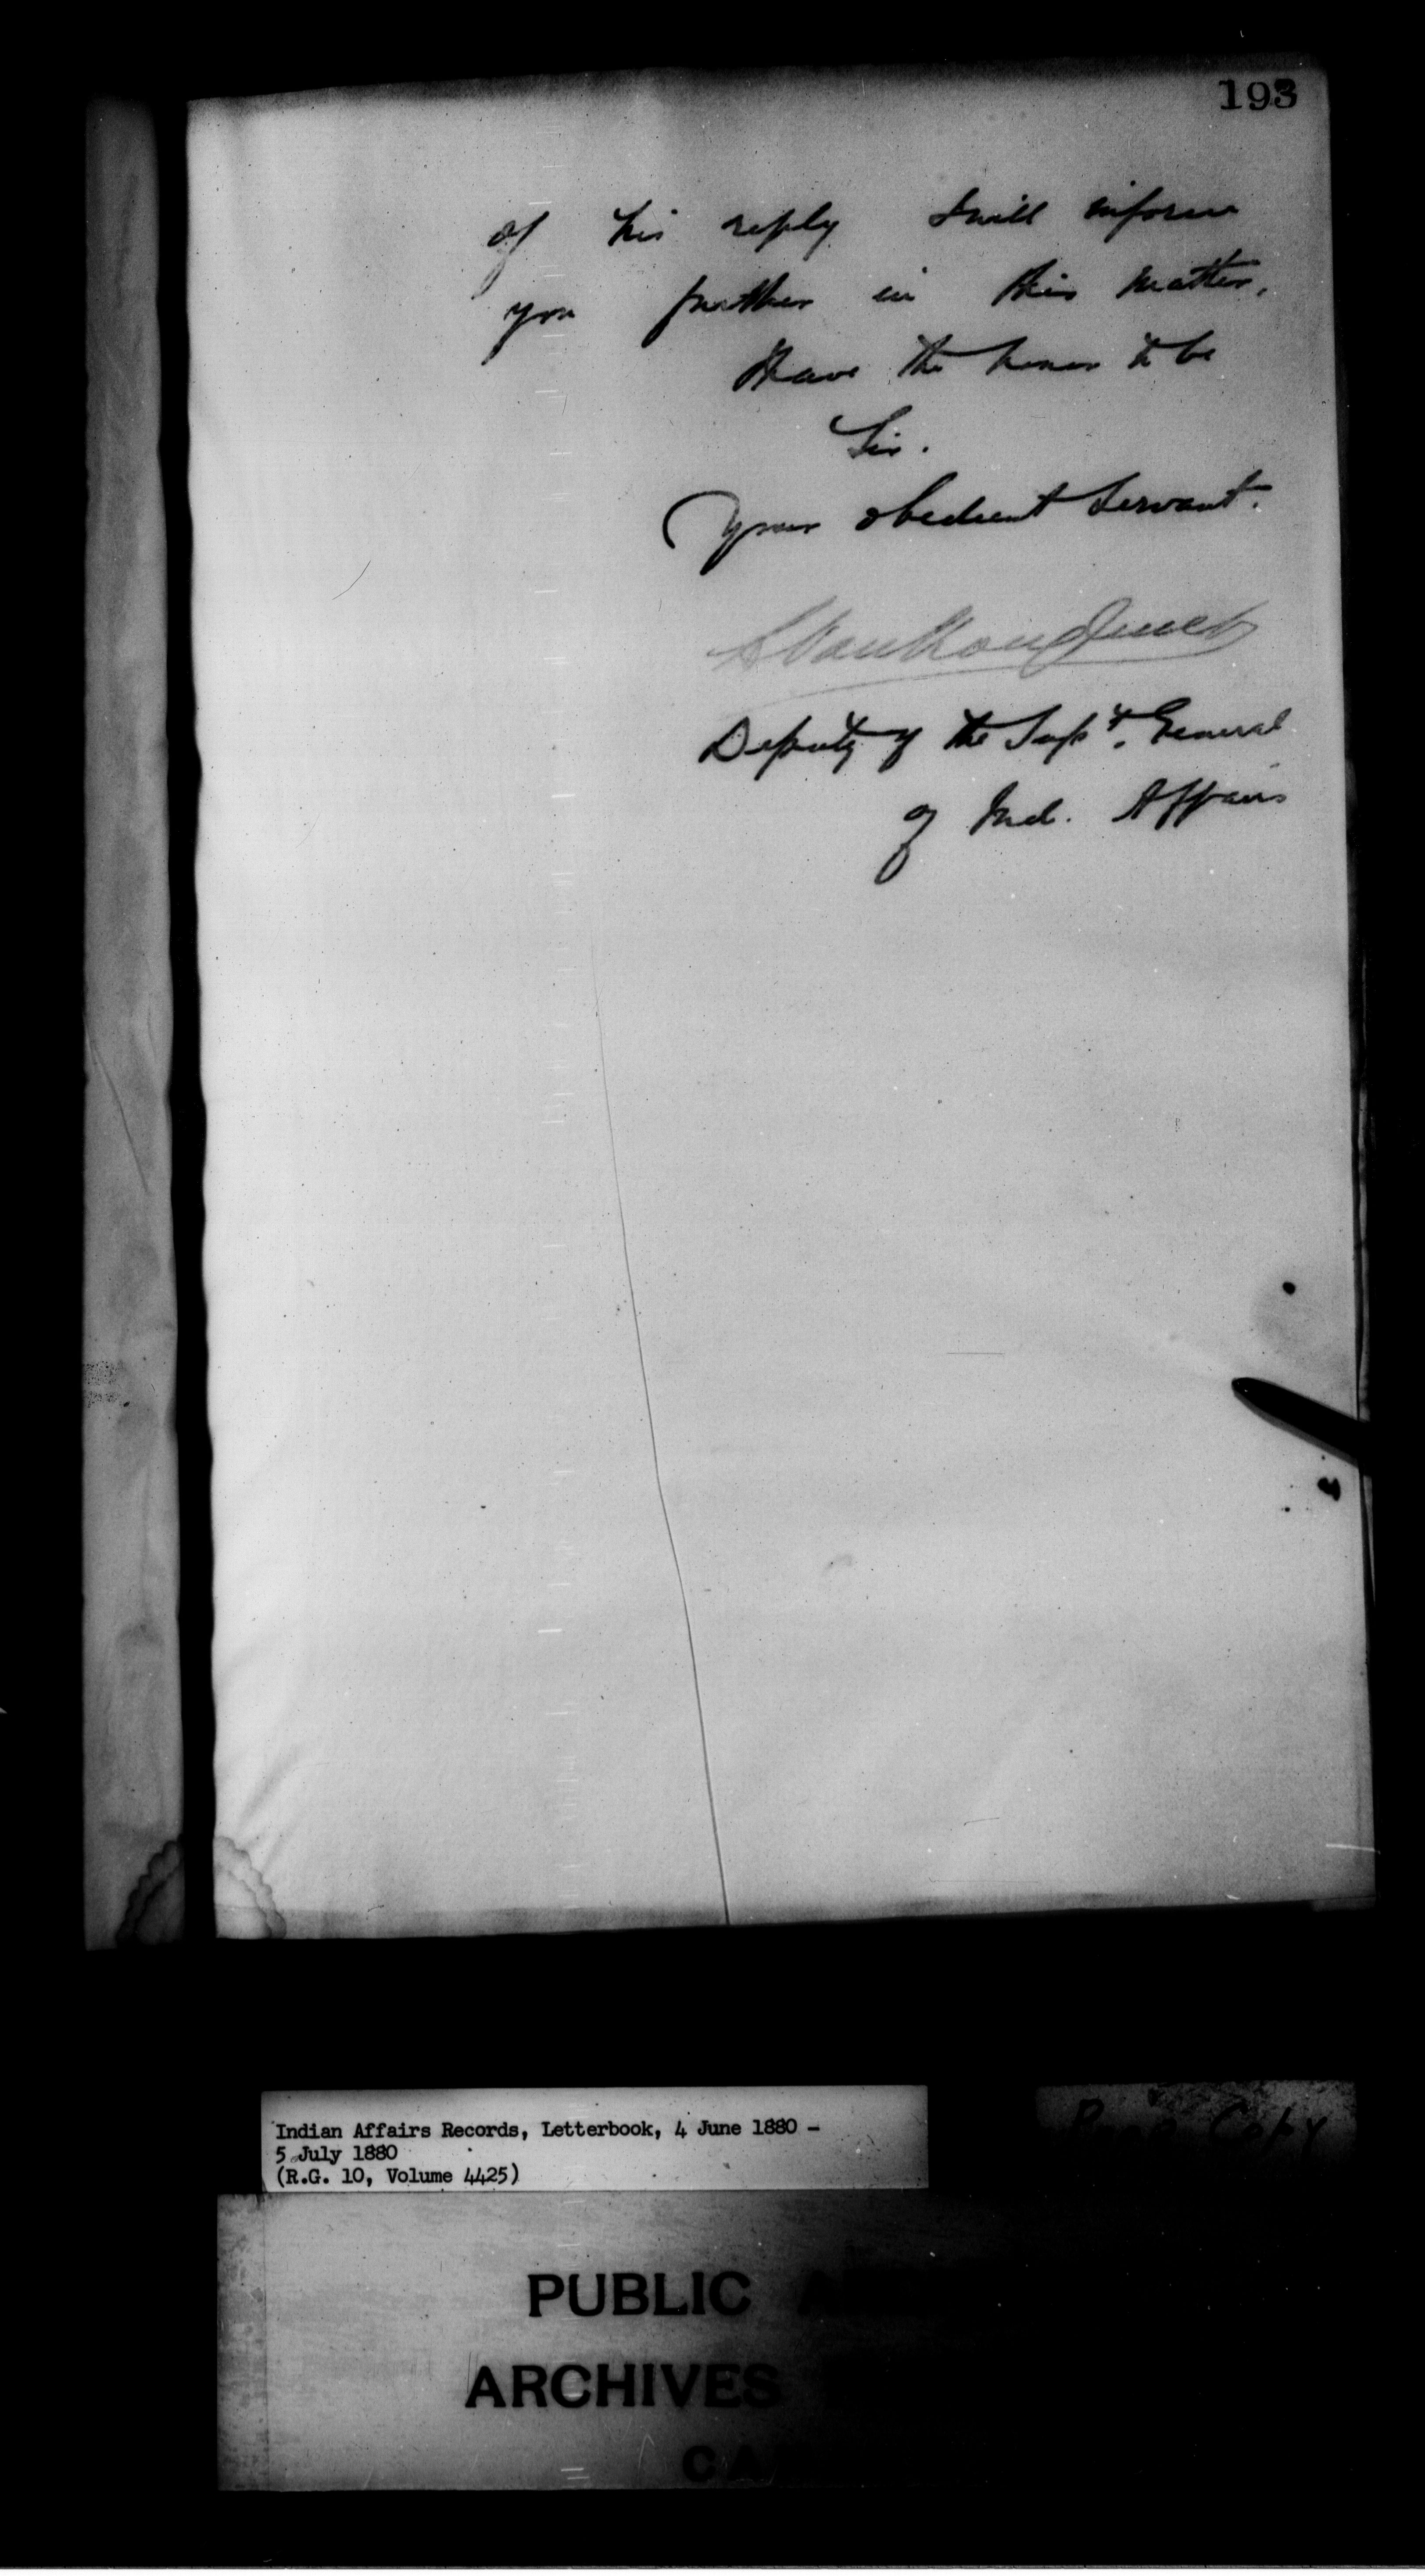 193
of his reply I will inform
you further in this matter,
I have the honor to be
Sir.
Your obedient Servant.
L VanKoughnet
Deputy of the Supt. General
of Ind. Affairs
Indian Affairs Records, Letterbook, 4 June 1880 -
5 July 1880
(R.G. 10, Volume 4425)
Copy
PUBLIC A
ARCHIVES
CA